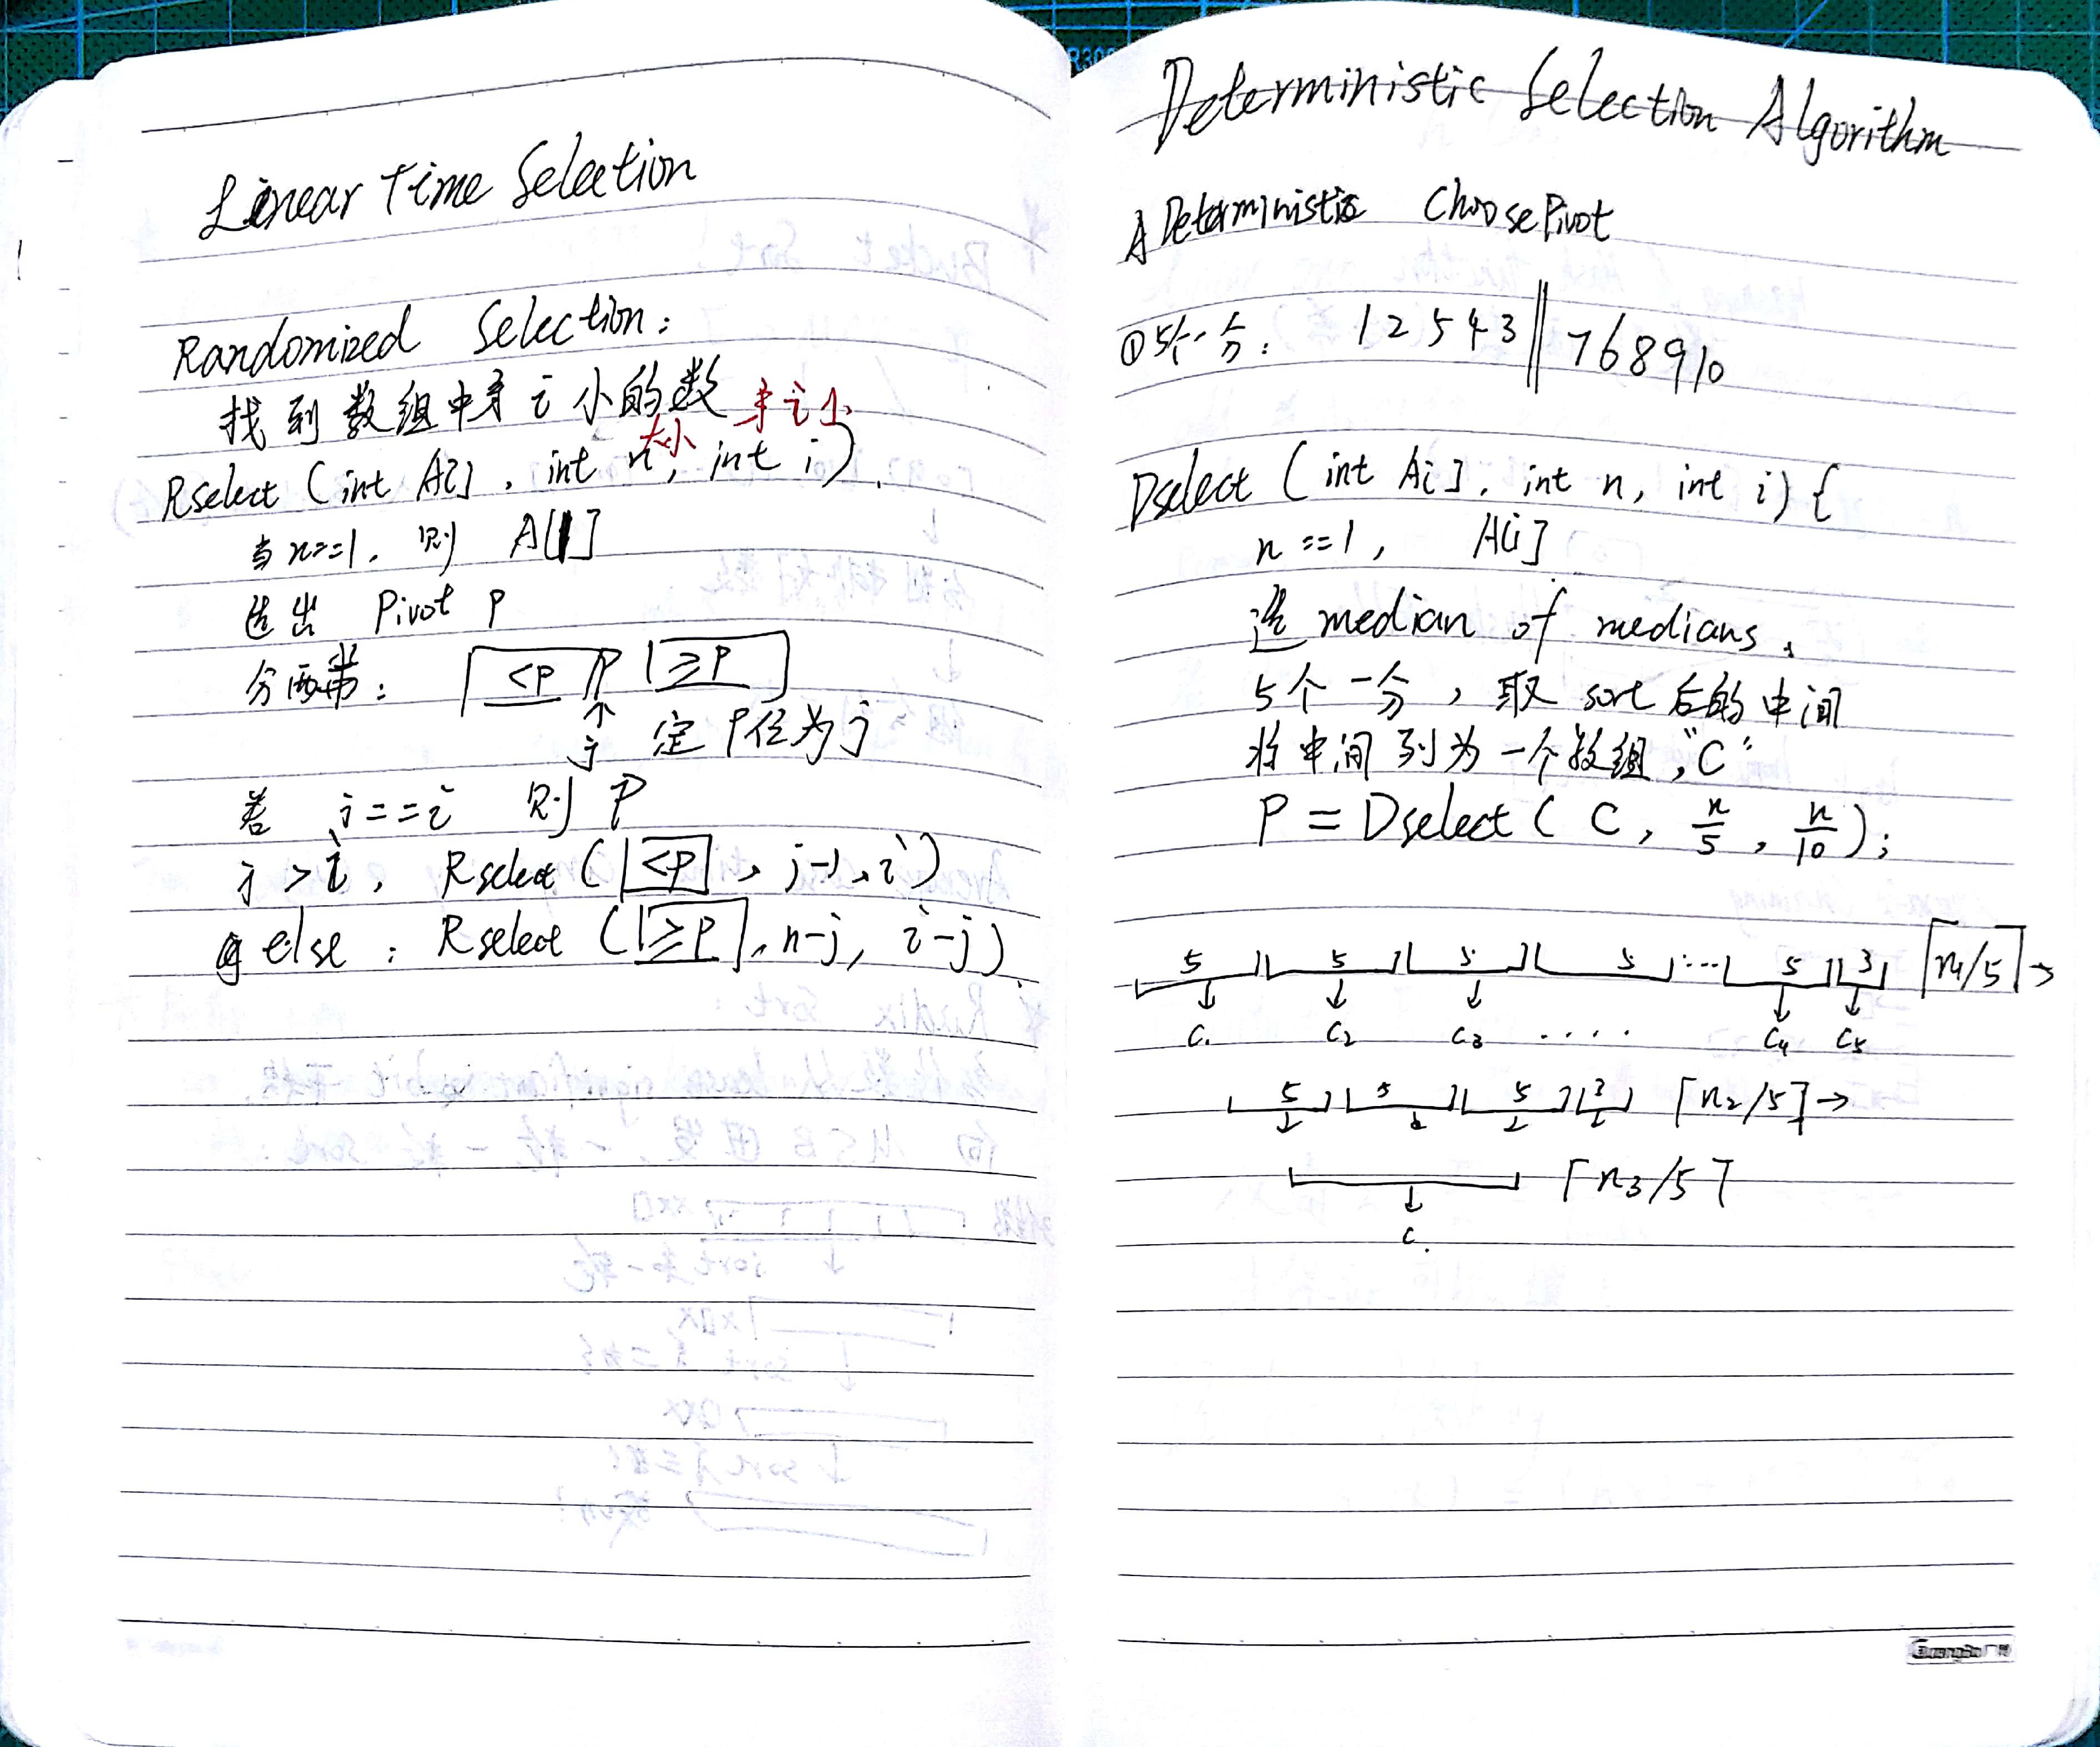 Linear Time Selection
Randomized Selection:
找到数组中第 i 小的数 第 i 小
大小
Rselect (int A[], int n, int i)
当 n==1, 则 A[1]
选出 Pivot P
分两半: <P P ≥P
↑
j 定P位为j
若 j==i 则 P
j > i, Rselect ( <P , j-1, i )
else: Rselect ( ≥P , n-j, i-j )
Deterministic Selection Algorithm
A Deterministic ChoosePivot
① 5个一分: 1 2 5 4 3 || 7 6 8 9 10
Dselect (int A[], int n, int i) {
n ==1, A[i]
选 median of medians,
5个一分, 取 sort 后的中间
将中间列为一个数组, "C"
P = Dselect ( C, n/5, n/10 );
5 5 5 5 ... 5 3 ⌈n1/5⌉ →
↓ ↓ ↓ ↓ ↓
C1 C2 C3 .... C4 C5
5 5 5 3 ⌈n2/5⌉ →
⌈n3/5⌉
↓
C.